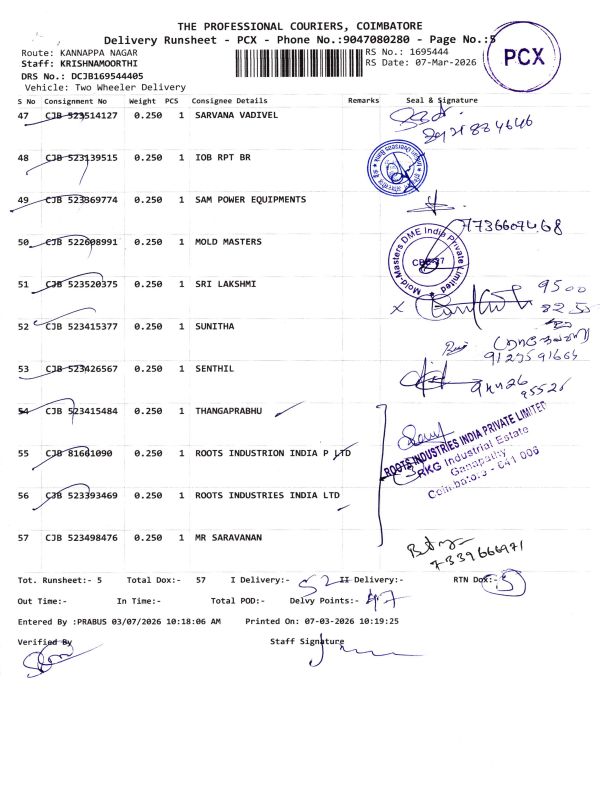 THE PROFESSIONAL COURIERS, COIMBATORE
Delivery Runsheet - PCX - Phone No.:9047080280 - Page No.:5
PCX
Route: KANNAPPA NAGAR
RS No.: 1695444
Staff: KRISHNAMOORTHI
RS Date: 07-Mar-2026
DRS No.: DCJB169544405
Vehicle: Two Wheeler Delivery
S No Consignment No Weight PCS Consignee Details Remarks Seal & Signature
47 CJB 523514127 0.250 1 SARVANA VADIVEL
48 CJB 523139515 0.250 1 IOB RPT BR
49 CJB 523369774 0.250 1 SAM POWER EQUIPMENTS
7736607468
50 CJB 522608991 0.250 1 MOLD MASTERS
Mold-Masters DME India Private Limited
51 CJB 523520375 0.250 1 SRI LAKSHMI
9500
8250
52 CJB 523415377 0.250 1 SUNITHA
53 CJB 523426567 0.250 1 SENTHIL
54 CJB 523415484 0.250 1 THANGAPRABHU
ROOTS INDUSTRIES INDIA PRIVATE LIMITED
RKG Industrial Estate
Ganapathy
Coimbatore - 641 006
55 CJB 81661090 0.250 1 ROOTS INDUSTRION INDIA P LTD
56 CJB 523393469 0.250 1 ROOTS INDUSTRIES INDIA LTD
57 CJB 523498476 0.250 1 MR SARAVANAN
7339666971
Tot. Runsheet:- 5 Total Dox:- 57 I Delivery:- 52 II Delivery:- RTN Dox:- 5
Out Time:- In Time:- Total POD:- Delvy Points:- 47
Entered By :PRABUS 03/07/2026 10:18:06 AM Printed On: 07-03-2026 10:19:25
Verified By Staff Signature